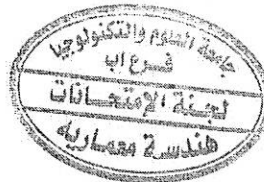 جامعة العلوم والتكنولوجيا
فرع اب
لجنة الإمتحانات
هندسة معمارية